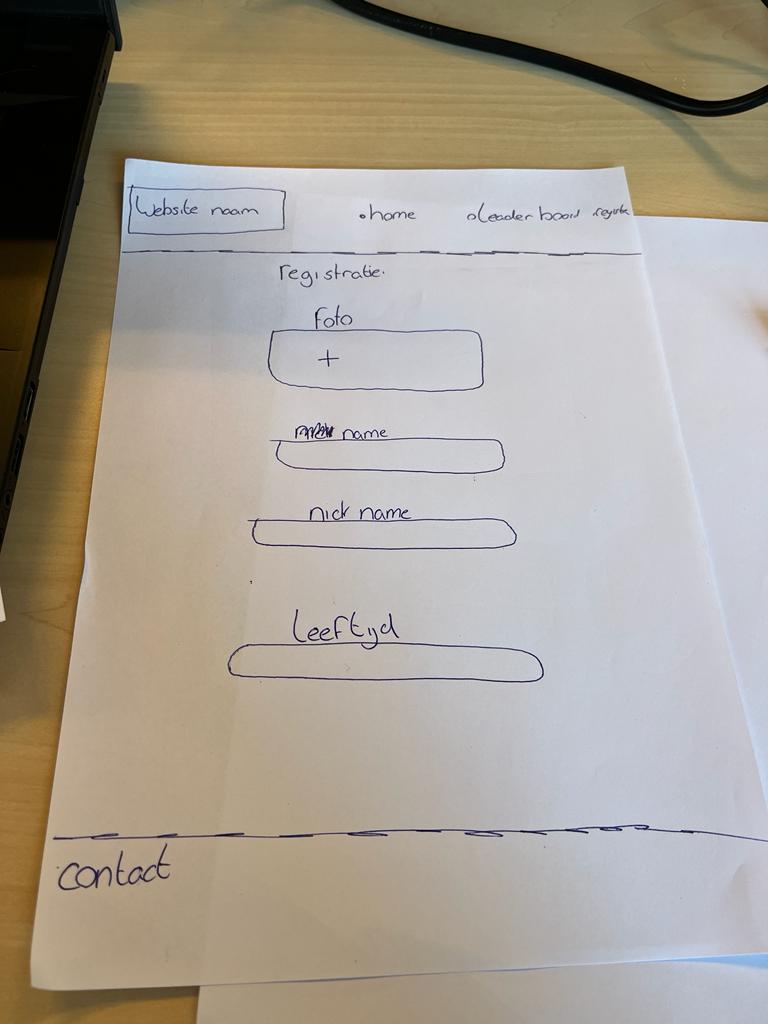 Website naam •home oLeader board
registratie.
foto
+
name
nick name
Leeftyd
contact